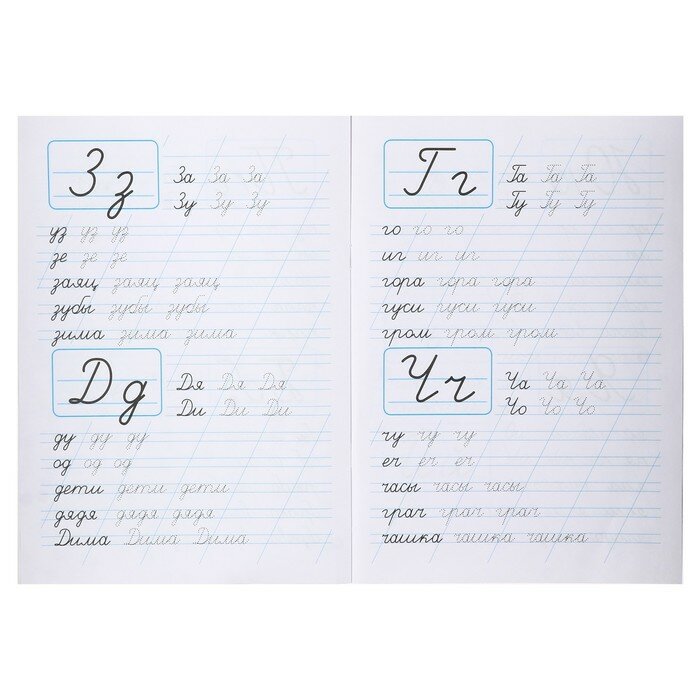 Зз
За За За
Зу Зу Зу
уз уз уз
зе зе зе
заяц заяц заяц
зубы зубы зубы
зима зима зима
Дд
Дя Дя Дя
Ди Ди Ди
ду ду ду
од од од
дети дети дети
дядя дядя дядя
Дима Дима Дима
Гг
Га Га Га
Гу Гу Гу
го го го
иг иг иг
гора гора гора
гуси гуси гуси
гром гром гром
Чч
Ча Ча Ча
Чо Чо Чо
чу чу чу
еч еч еч
часы часы часы
грач грач грач
чашка чашка чашка